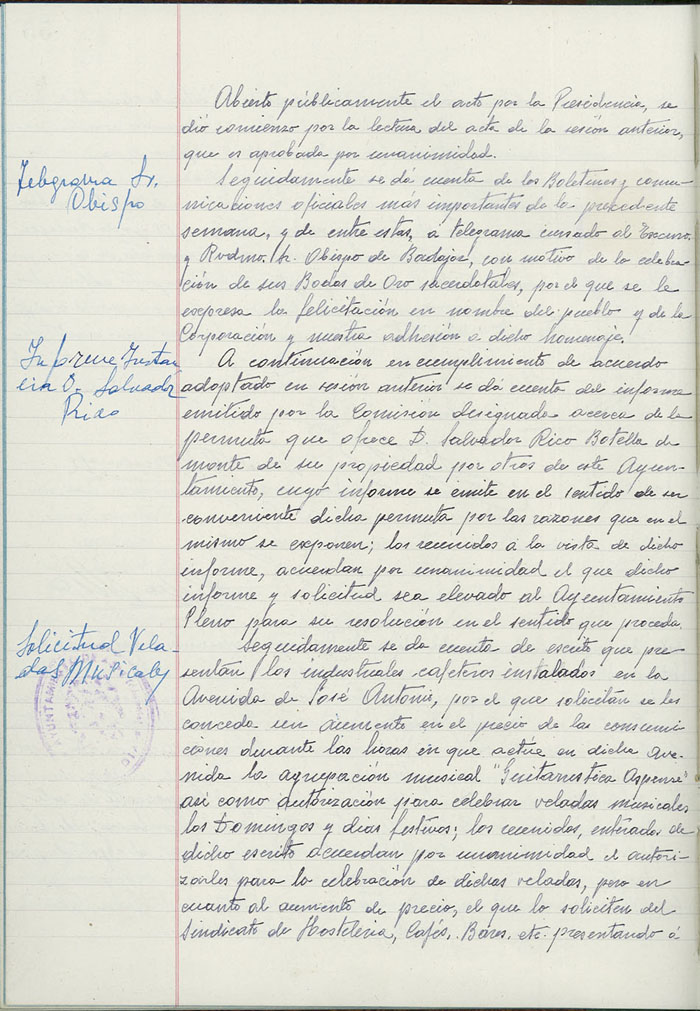 Abierto públicamente el acto por la Presidencia, se
dió comienzo por la lectura del acta de la sesión anterior,
que es aprobada por unanimidad.
Telegrama Sr.
Obispo
Seguidamente se dá cuenta de los Boletines y comu-
nicaciones oficiales más importantes de la precedente
semana, y de entre estas, á telegrama cursado al Excmo.
y Rvdmo. Sr. Obispo de Badajoz, con motivo de la celebra-
ción de sus Bodas de Oro sacerdotales, por el que se le
expresa la felicitación en nombre del pueblo y de la
Corporación y nuestra adhesión a dicho homenaje.
Informe Instan
cia D. Salvador
Rico
A continuación en cumplimiento de acuerdo
adoptado en sesión anterior se dá cuenta del informe
emitido por la Comisión designada acerca de la
permuta que ofrece D. Salvador Rico Botella de
monte de su propiedad por otros de este Ayun-
tamiento, cuyo informe se emite en el sentido de ser
conveniente dicha permuta por las razones que en el
mismo se exponen; los reunidos á la vista de dicho
informe, acuerdan por unanimidad el que dicho
informe y solicitud sea elevado al Ayuntamiento
Pleno para su resolución en el sentido que proceda.
Solicitud Vela-
das Musicales
Seguidamente se da cuenta de escrito que pre-
sentan los industriales cafeteros instalados en la
Avenida de José Antonio, por el que solicitan se les
conceda un aumento en el precio de las consumi-
ciones durante las horas en que actúe en dicha Ave-
nida la agrupación musical "Guitarrística Aspense"
así como autorización para celebrar veladas musicales
los Domingos y dias festivos; los reunidos, enterados de
dicho escrito acuerdan por unanimidad el autori-
zarles para la celebración de dichas veladas, pero en
cuanto al aumento de precio, el que lo soliciten del
Sindicato de Hosteleria, Cafés, Bares, etc. presentando á
AYUNTAMIEN